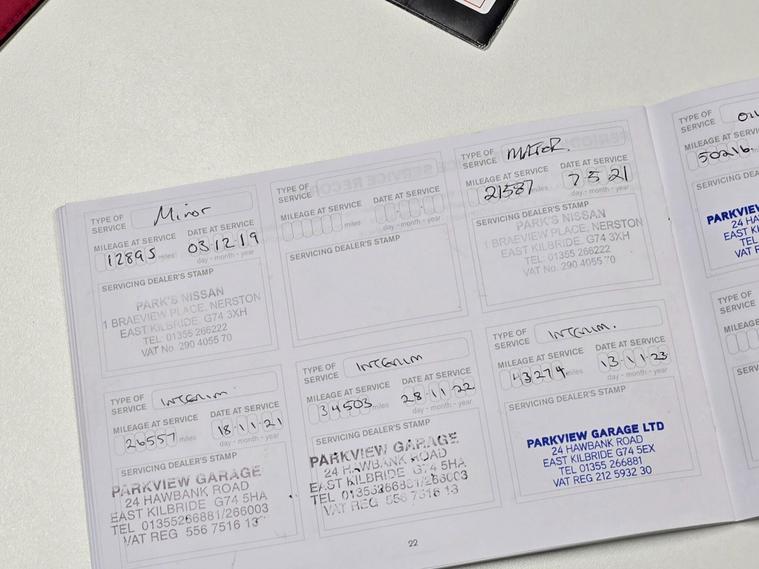 TYPE OF SERVICE Minor
MILEAGE AT SERVICE DATE AT SERVICE
12895 miles 03·12·19
day - month - year
SERVICING DEALER'S STAMP
PARK'S NISSAN
1 BRAEVIEW PLACE, NERSTON
EAST KILBRIDE. G74 3XH
TEL. 01355 266222
VAT No. 290 4055 70
TYPE OF SERVICE
MILEAGE AT SERVICE DATE AT SERVICE
miles
day - month - year
SERVICING DEALER'S STAMP
TYPE OF SERVICE MAJOR.
MILEAGE AT SERVICE DATE AT SERVICE
21587 miles 7·5·21
day - month - year
SERVICING DEALER'S STAMP
PARK'S NISSAN
BRAEVIEW PLACE, NERSTON
EAST KILBRIDE. G74 3XH
TEL. 01355 266222
VAT No. 290 4055 70
TYPE OF SERVICE INTERIM.
MILEAGE AT SERVICE DATE AT SERVICE
26557 miles 18·11·21
day - month - year
SERVICING DEALER'S STAMP
PARKVIEW GARAGE
24 HAWBANK ROAD
EAST KILBRIDE G74 5HA
TEL 01355266881/266003
VAT REG 556 7516 13
TYPE OF SERVICE INTERIM
MILEAGE AT SERVICE DATE AT SERVICE
34503 miles 28·11·22
day - month - year
SERVICING DEALER'S STAMP
PARKVIEW GARAGE
24 HAWBANK ROAD
EAST KILBRIDE G74 5HA
TEL 01355266881/266003
VAT REG 556 7516 13
TYPE OF SERVICE INTERIM.
MILEAGE AT SERVICE DATE AT SERVICE
43274 miles 13·11·23
day - month - year
SERVICING DEALER'S STAMP
PARKVIEW GARAGE LTD
24 HAWBANK ROAD
EAST KILBRIDE G74 5EX
TEL 01355 266881
VAT REG 212 5932 30
22
TYPE OF SERVICE
MILEAGE AT
50216.
SERVICING
PARKVIEW
EAST
TEL
TYPE OF SERVICE